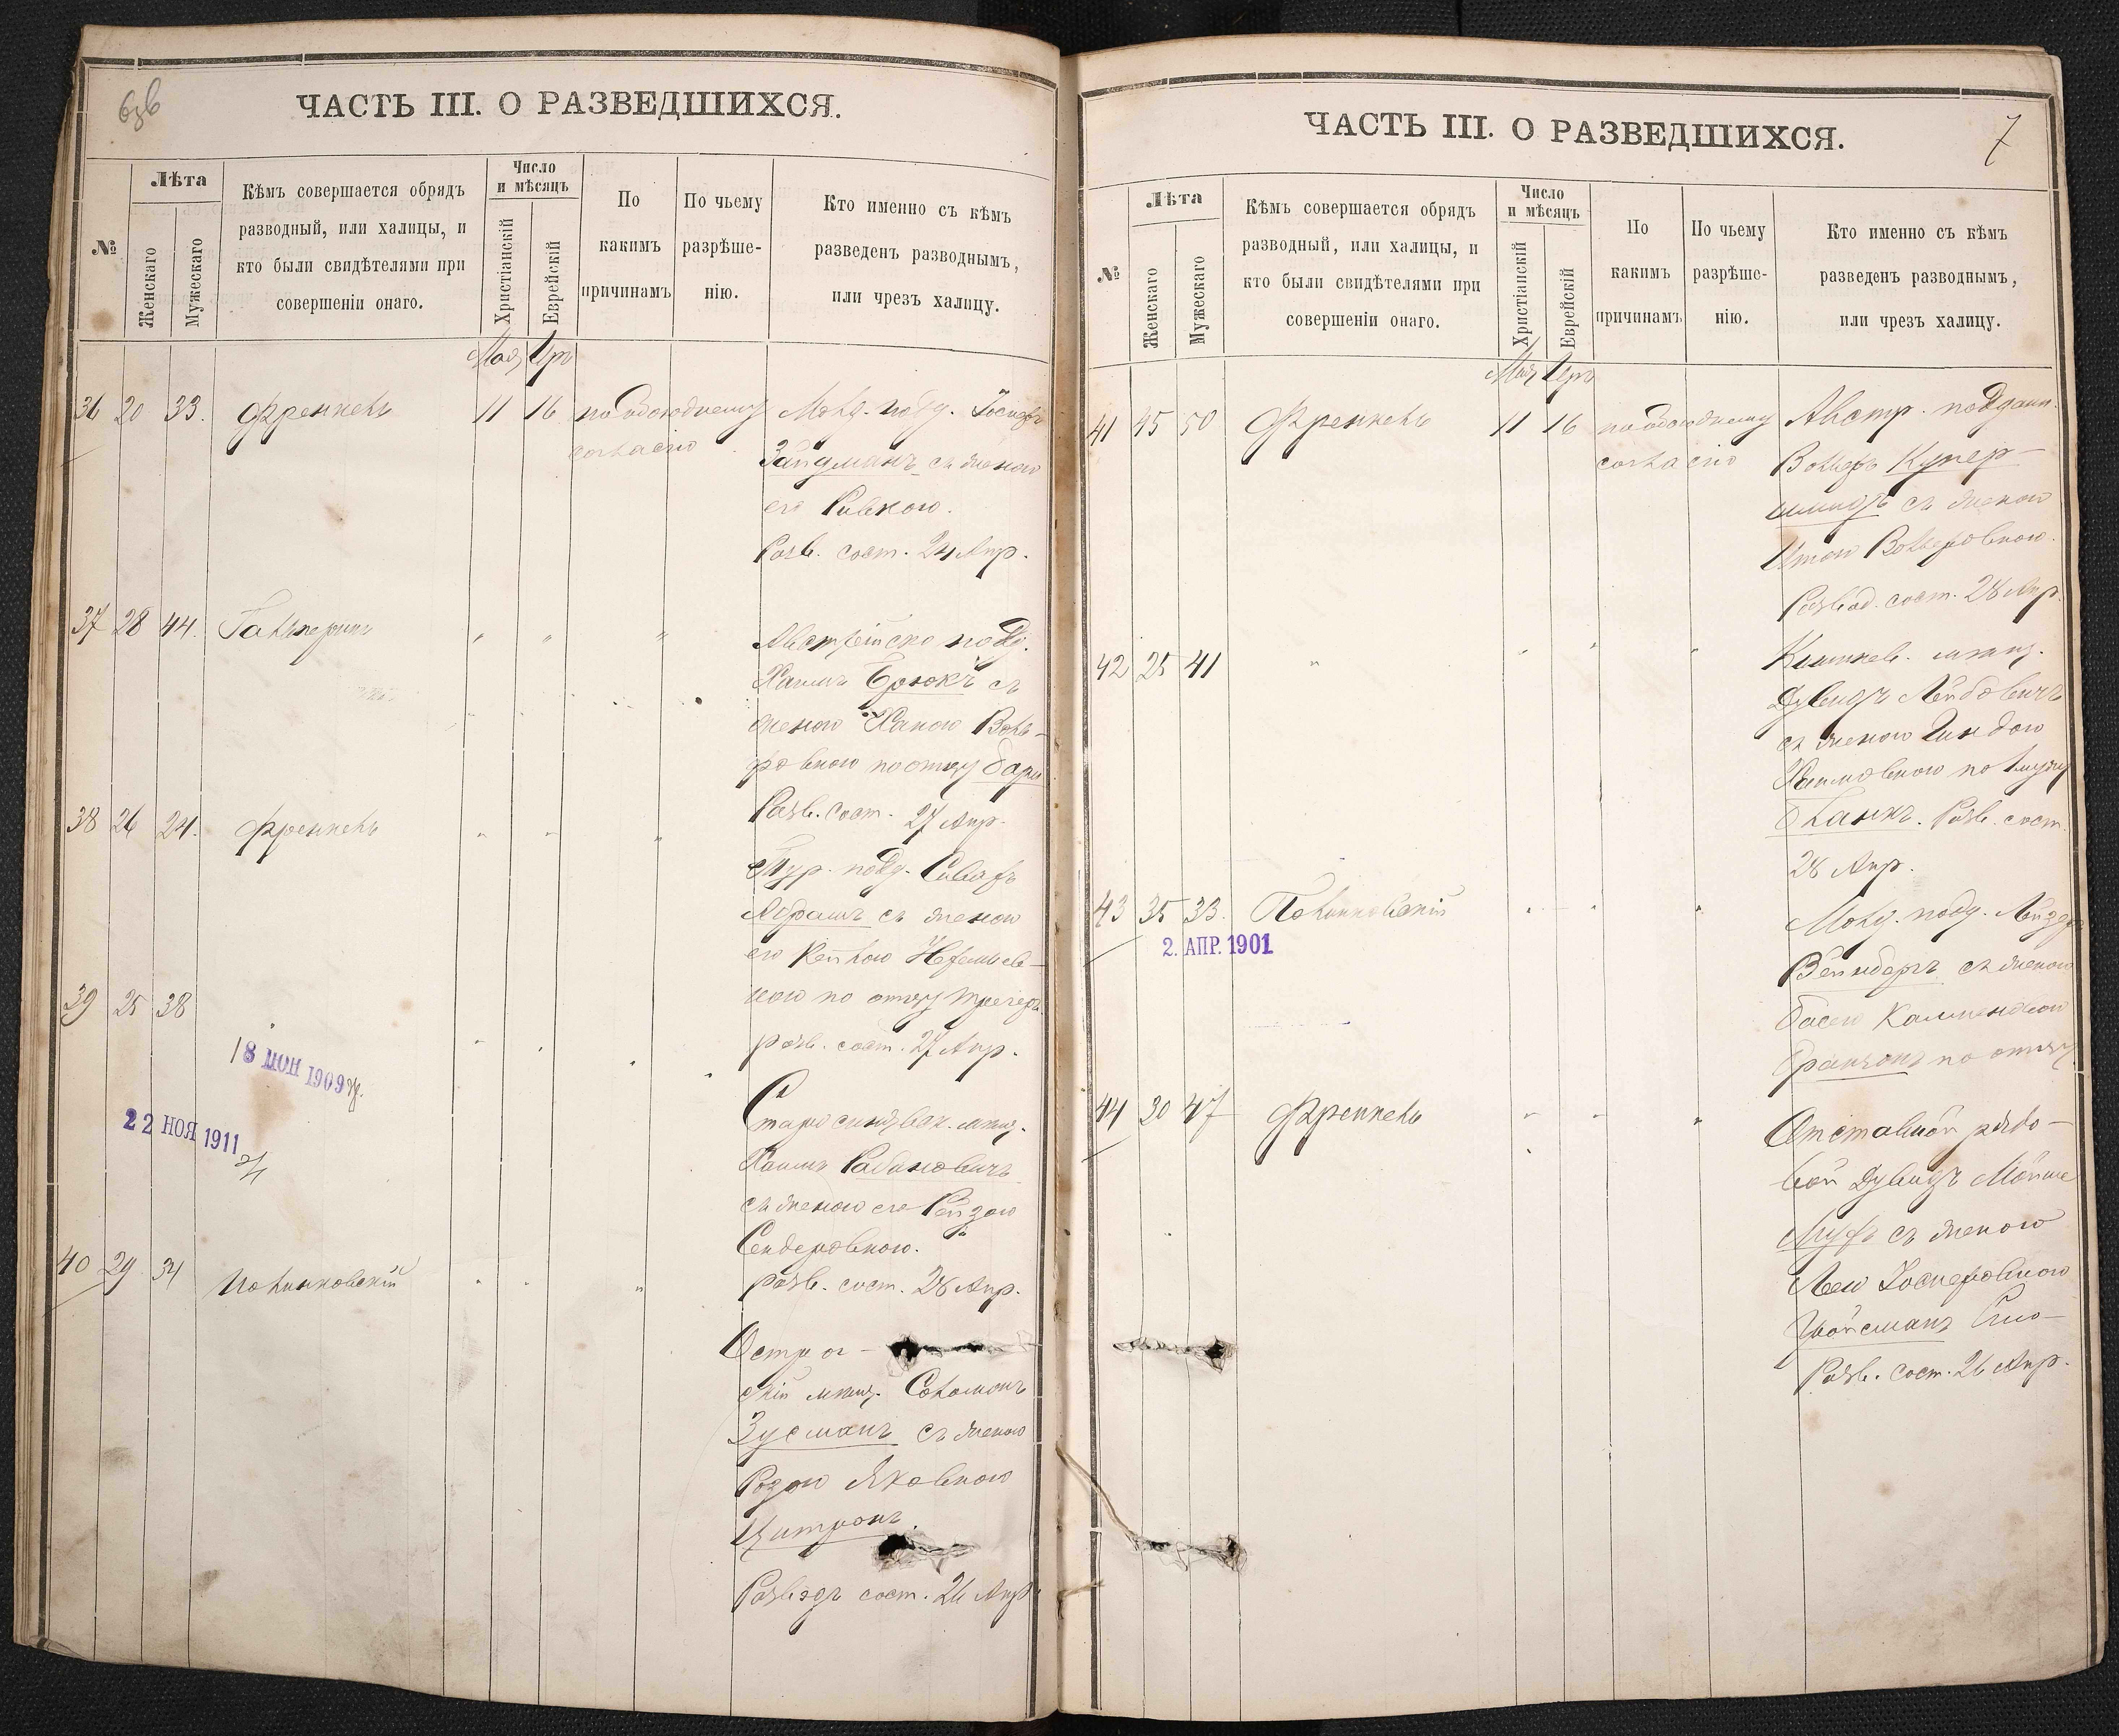 6зв
ЧАСТЬ III. О РАЗВЕДШИХСЯ.
№
Лѣта
Женскаго
Мужескаго
Кѣмъ совершается обрядъ
разводный, или халицы, и
кто были свидѣтелями при
совершеніи онаго.
Число
и мѣсяцъ
Христіанскій
Еврейскій
По
какимъ
причинамъ
По чьему
разрѣше-
нію.
Кто именно съ кѣмъ
разведенъ разводнымъ,
или чрезъ халицу.
Мая Iяръ
36 20 33. Френкель 11 16 по обоюдному Молд. подд. Іосифъ
согласію
Зайдманъ съ женою
его Ривкою.
Разв. сост. 24 Апр.
37 28 44. Гальперинъ " " "
Австрійско подд.
Хаимъ Брюкъ съ
женою Ханою Воль-
фовною по отцу
Разв. сост. 27 Апр.
38 26 24. Френкель " " "
Тур. подд.
Абрамъ съ женою
его Кейлою
ною по отцу
разв. сост. 27 Апр.
39 25 38
18 ИЮН 1909
22 НОЯ 1911
мѣщ.
Хаимъ Рабиновичъ
съ женою его Рейзою
Сендеровною.
разв. сост. 28 Апр.
40 29 34 Полинковскій " " "
Острог-
скій мѣщ. Соломонъ
Зусманъ съ женою
Розою Яковною
Цитронъ.
Разводъ сост. 26 Апр.
7
ЧАСТЬ III. О РАЗВЕДШИХСЯ.
№
Лѣта
Женскаго
Мужескаго
Кѣмъ совершается обрядъ
разводный, или халицы, и
кто были свидѣтелями при
совершеніи онаго.
Число
и мѣсяцъ
Христіанскій
Еврейскій
По
какимъ
причинамъ
По чьему
разрѣше-
нію.
Кто именно съ кѣмъ
разведенъ разводнымъ,
или чрезъ халицу.
Мая Iяръ
41 45 50 Френкель 11 16 по обоюдному Австр. подданн.
согласію Вольфъ Купер-
шмидъ съ женою
Итою Вольфовною.
Развод. сост. 28 Апр.
42 25 41 "
Кишинев. мѣщ.
Дувидъ Лейбовичъ
съ женою Гиндою
Хаимовною по
Бланкъ. Разв. сост.
28 Апр.
43 35 33. Полинковскій
2. АПР. 1901
Молд. подд. Лейзеръ
Вейнбергъ съ женою
Басею
по отцу
44 30 47 Френкель
Отставной рядо-
вой Дувидъ Мойше
съ женою
Леею Іосифовною
Разв. сост. 26 Апр.